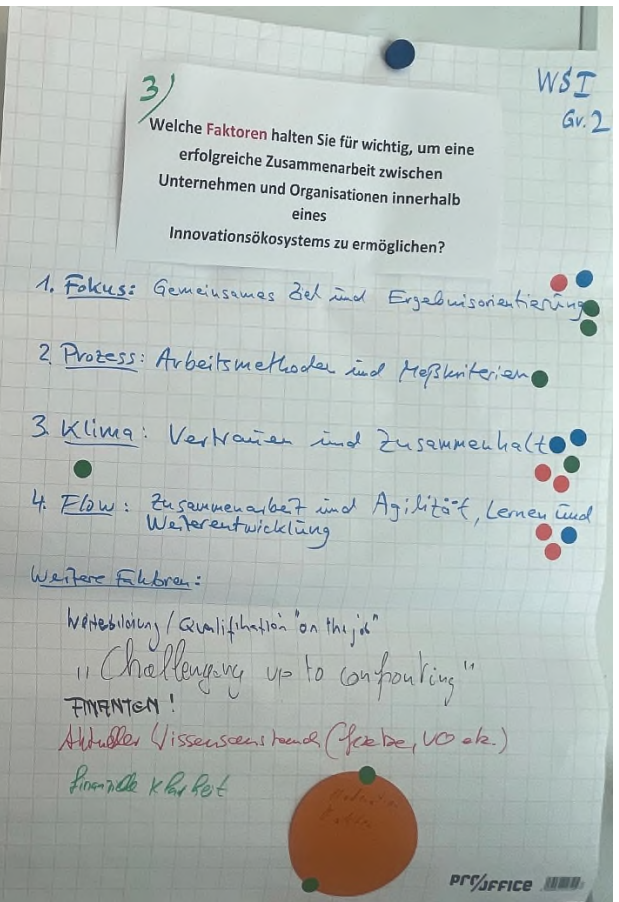 3)
WS I
Gr. 2
Welche Faktoren halten Sie für wichtig, um eine
erfolgreiche Zusammenarbeit zwischen
Unternehmen und Organisationen innerhalb
eines
Innovationsökosystems zu ermöglichen?
1. Fokus: Gemeinsames Ziel und Ergebnisorientierung
2. Prozess: Arbeitsmethoden und Meßkriterien
3. Klima: Vertrauen und Zusammenhalt
4. Flow: Zusammenarbeit und Agilität, Lernen und
Weiterentwicklung
Weitere Faktoren:
Weiterbildung / Qualifikation "on the job"
"Challenging up to confronting"
FINANZEN!
Aktueller Wissensstand (Gesetze, VO etc.)
finanzielle Klarheit
PRO/OFFICE